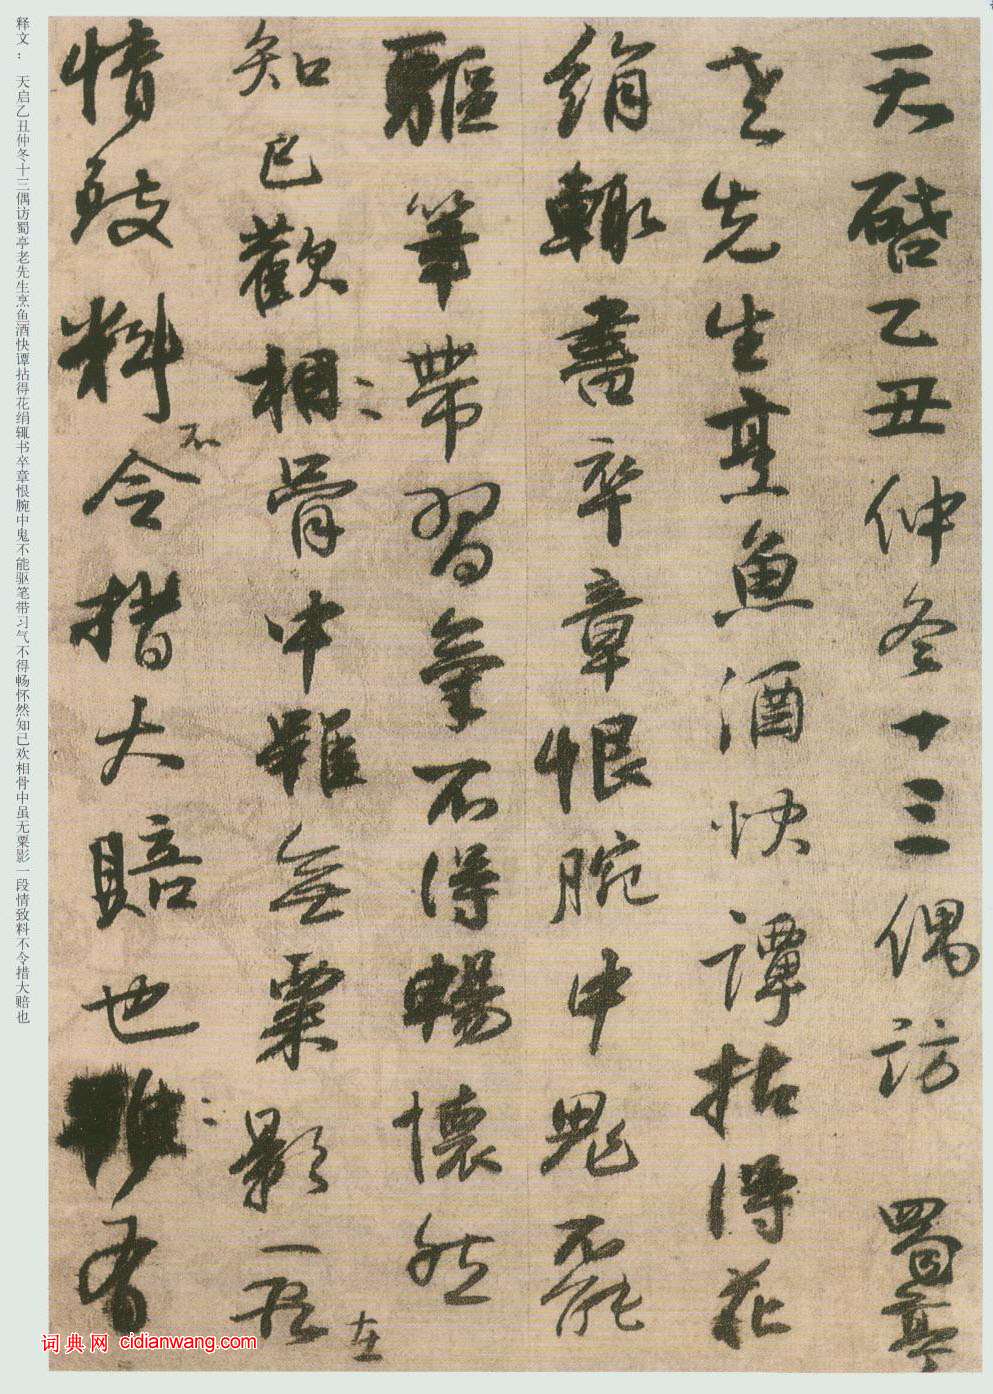 天啓乙丑仲冬十三偶訪蜀亭
老先生亨魚酒快譚拈得花
絹輒書卒章恨腕中鬼不能
驅筆帶習氣不得暢懷然
知已歡相骨中雖無粟影一
在
情致料不令措大賠也
有
释文： 天启乙丑仲冬十三偶访蜀亭老先生烹鱼酒快谭拈得花绢辄书卒章恨腕中鬼不能驱笔带习气不得畅怀然知已欢相骨中虽无粟影一段情致料不令措大赔也
词典网 cidianwang.com